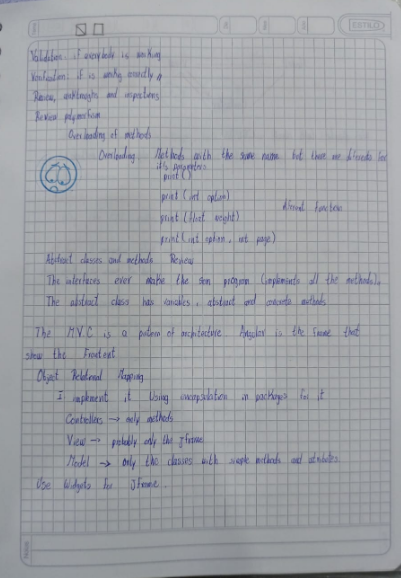 ESTILO
Validation: if everybody is working
Verification: if is working exactly
Review, walktroughts and inspections
Review polymorfism
Overloading of methods
Overloading. Methods with the same name but there are diferents for
its properties
print ()
print (int option)
diferent functions
print (float weight)
print (int option, int page)
Abstract classes and methods Review
The interfaces ever make the son program (implements all the methods).
The abstract class has variables, abstract and concrete methods
The M.V.C is a pattern of architecture. Angular is the Frame that
show the Frontent
Object Relational Mapping
I implement it. Using incapsulation in packages for it
Controllers → only methods
View → probably only the JFrame
Model → only the classes with simple methods and attributes.
Use Widgets for JFrame.